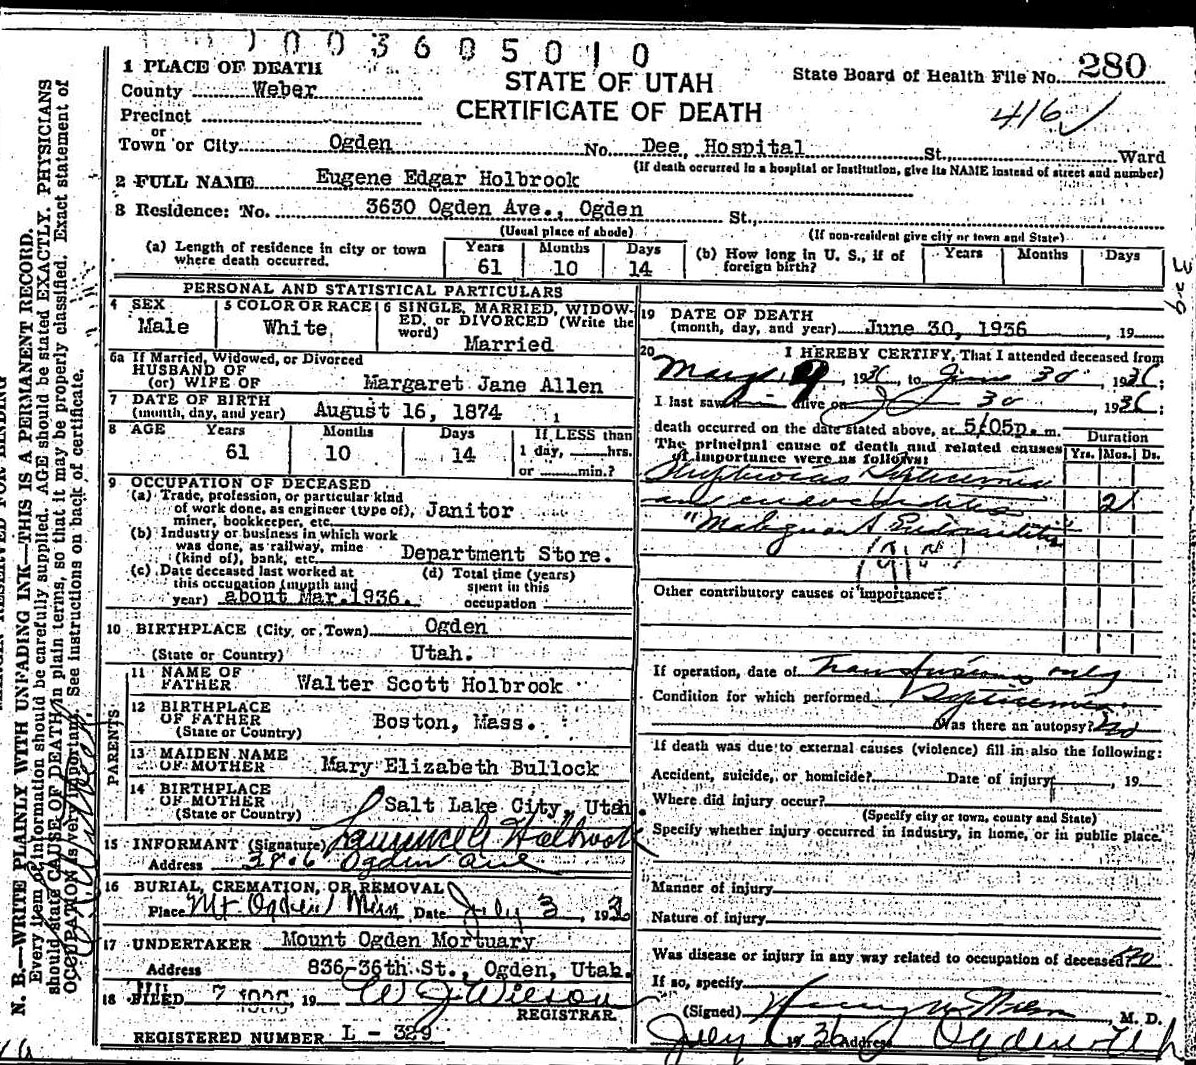 0 0 3 6 0 5 0 1 0
1 PLACE OF DEATH
County Weber
STATE OF UTAH
State Board of Health File No. 280
CERTIFICATE OF DEATH
416
Precinct
or
Town or City Ogden No. Dee, Hospital St., Ward
(If death occurred in a hospital or institution, give its NAME instead of street and number)
2 FULL NAME Eugene Edgar Holbrook
3 Residence: No. 3630 Ogden Ave., Ogden St.,
(Usual place of abode) (If non-resident give city or town and State)
(a) Length of residence in city or town where death occurred. Years 61 Months 10 Days 14
(b) How long in U. S., if of foreign birth? Years Months Days
PERSONAL AND STATISTICAL PARTICULARS
4 SEX Male
5 COLOR OR RACE White,
6 SINGLE, MARRIED, WIDOWED, or DIVORCED (Write the word) Married
6a If Married, Widowed, or Divorced
HUSBAND OF
(or) WIFE OF Margaret Jane Allen
7 DATE OF BIRTH
(month, day, and year) August 16, 1874
8 AGE Years 61 Months 10 Days 14
If LESS than
1 day, hrs.
or min.?
9 OCCUPATION OF DECEASED
(a) Trade, profession, or particular kind
of work done, as engineer (type of), Janitor
miner, bookkeeper, etc.
(b) Industry or business in which work
was done, as railway, mine
(kind of), bank, etc. Department Store.
(c) Date deceased last worked at
this occupation (month and
year) about Mar. 1936.
(d) Total time (years)
spent in this
occupation
10 BIRTHPLACE (City, or Town) Ogden
(State or Country) Utah.
PARENTS
11 NAME OF
FATHER Walter Scott Holbrook
12 BIRTHPLACE
OF FATHER Boston, Mass.
(State or Country)
13 MAIDEN NAME
OF MOTHER Mary Elizabeth Bullock
14 BIRTHPLACE
OF MOTHER Salt Lake City, Utah.
(State or Country)
15 INFORMANT (Signature) Holbrook
Address 3806 Ogden Ave
16 BURIAL, CREMATION, OR REMOVAL
Place Mt Ogden Date July 3, 193
17 UNDERTAKER Mount Ogden Mortuary
Address 836-36th St., Ogden, Utah.
18 FILED 7 19 W J Wilson
REGISTRAR
REGISTERED NUMBER L - 329
19 DATE OF DEATH
(month, day, and year) June 30, 1936 , 19
20 I HEREBY CERTIFY, That I attended deceased from
May 9, 1936, to June 30, 1936;
I last saw alive on 30, 1936;
death occurred on the date stated above, at 5/05p. m.
The principal cause of death and related causes
of importance were as follows:
Duration
Yrs. Mos. Ds.
Septicemia
and endocarditis 2
"Malignant Endocarditis"
Other contributory causes of importance:
If operation, date of Transfusions only
Condition for which performed Septicemia
Was there an autopsy? No
If death was due to external causes (violence) fill in also the following:
Accident, suicide, or homicide? Date of injury , 19
Where did injury occur?
(Specify city or town, county and State)
Specify whether injury occurred in industry, in home, or in public place.
Manner of injury
Nature of injury
Was disease or injury in any way related to occupation of deceased? No
If so, specify
(Signed) , M. D.
July 1 1936 Address Ogden Utah
N. B.—WRITE PLAINLY WITH UNFADING INK—THIS IS A PERMANENT RECORD.
Every item of information should be carefully supplied. AGE should be stated EXACTLY. PHYSICIANS
should state CAUSE OF DEATH in plain terms, so that it may be properly classified. Exact statement of
OCCUPATION is very important. See instructions on back of certificate.